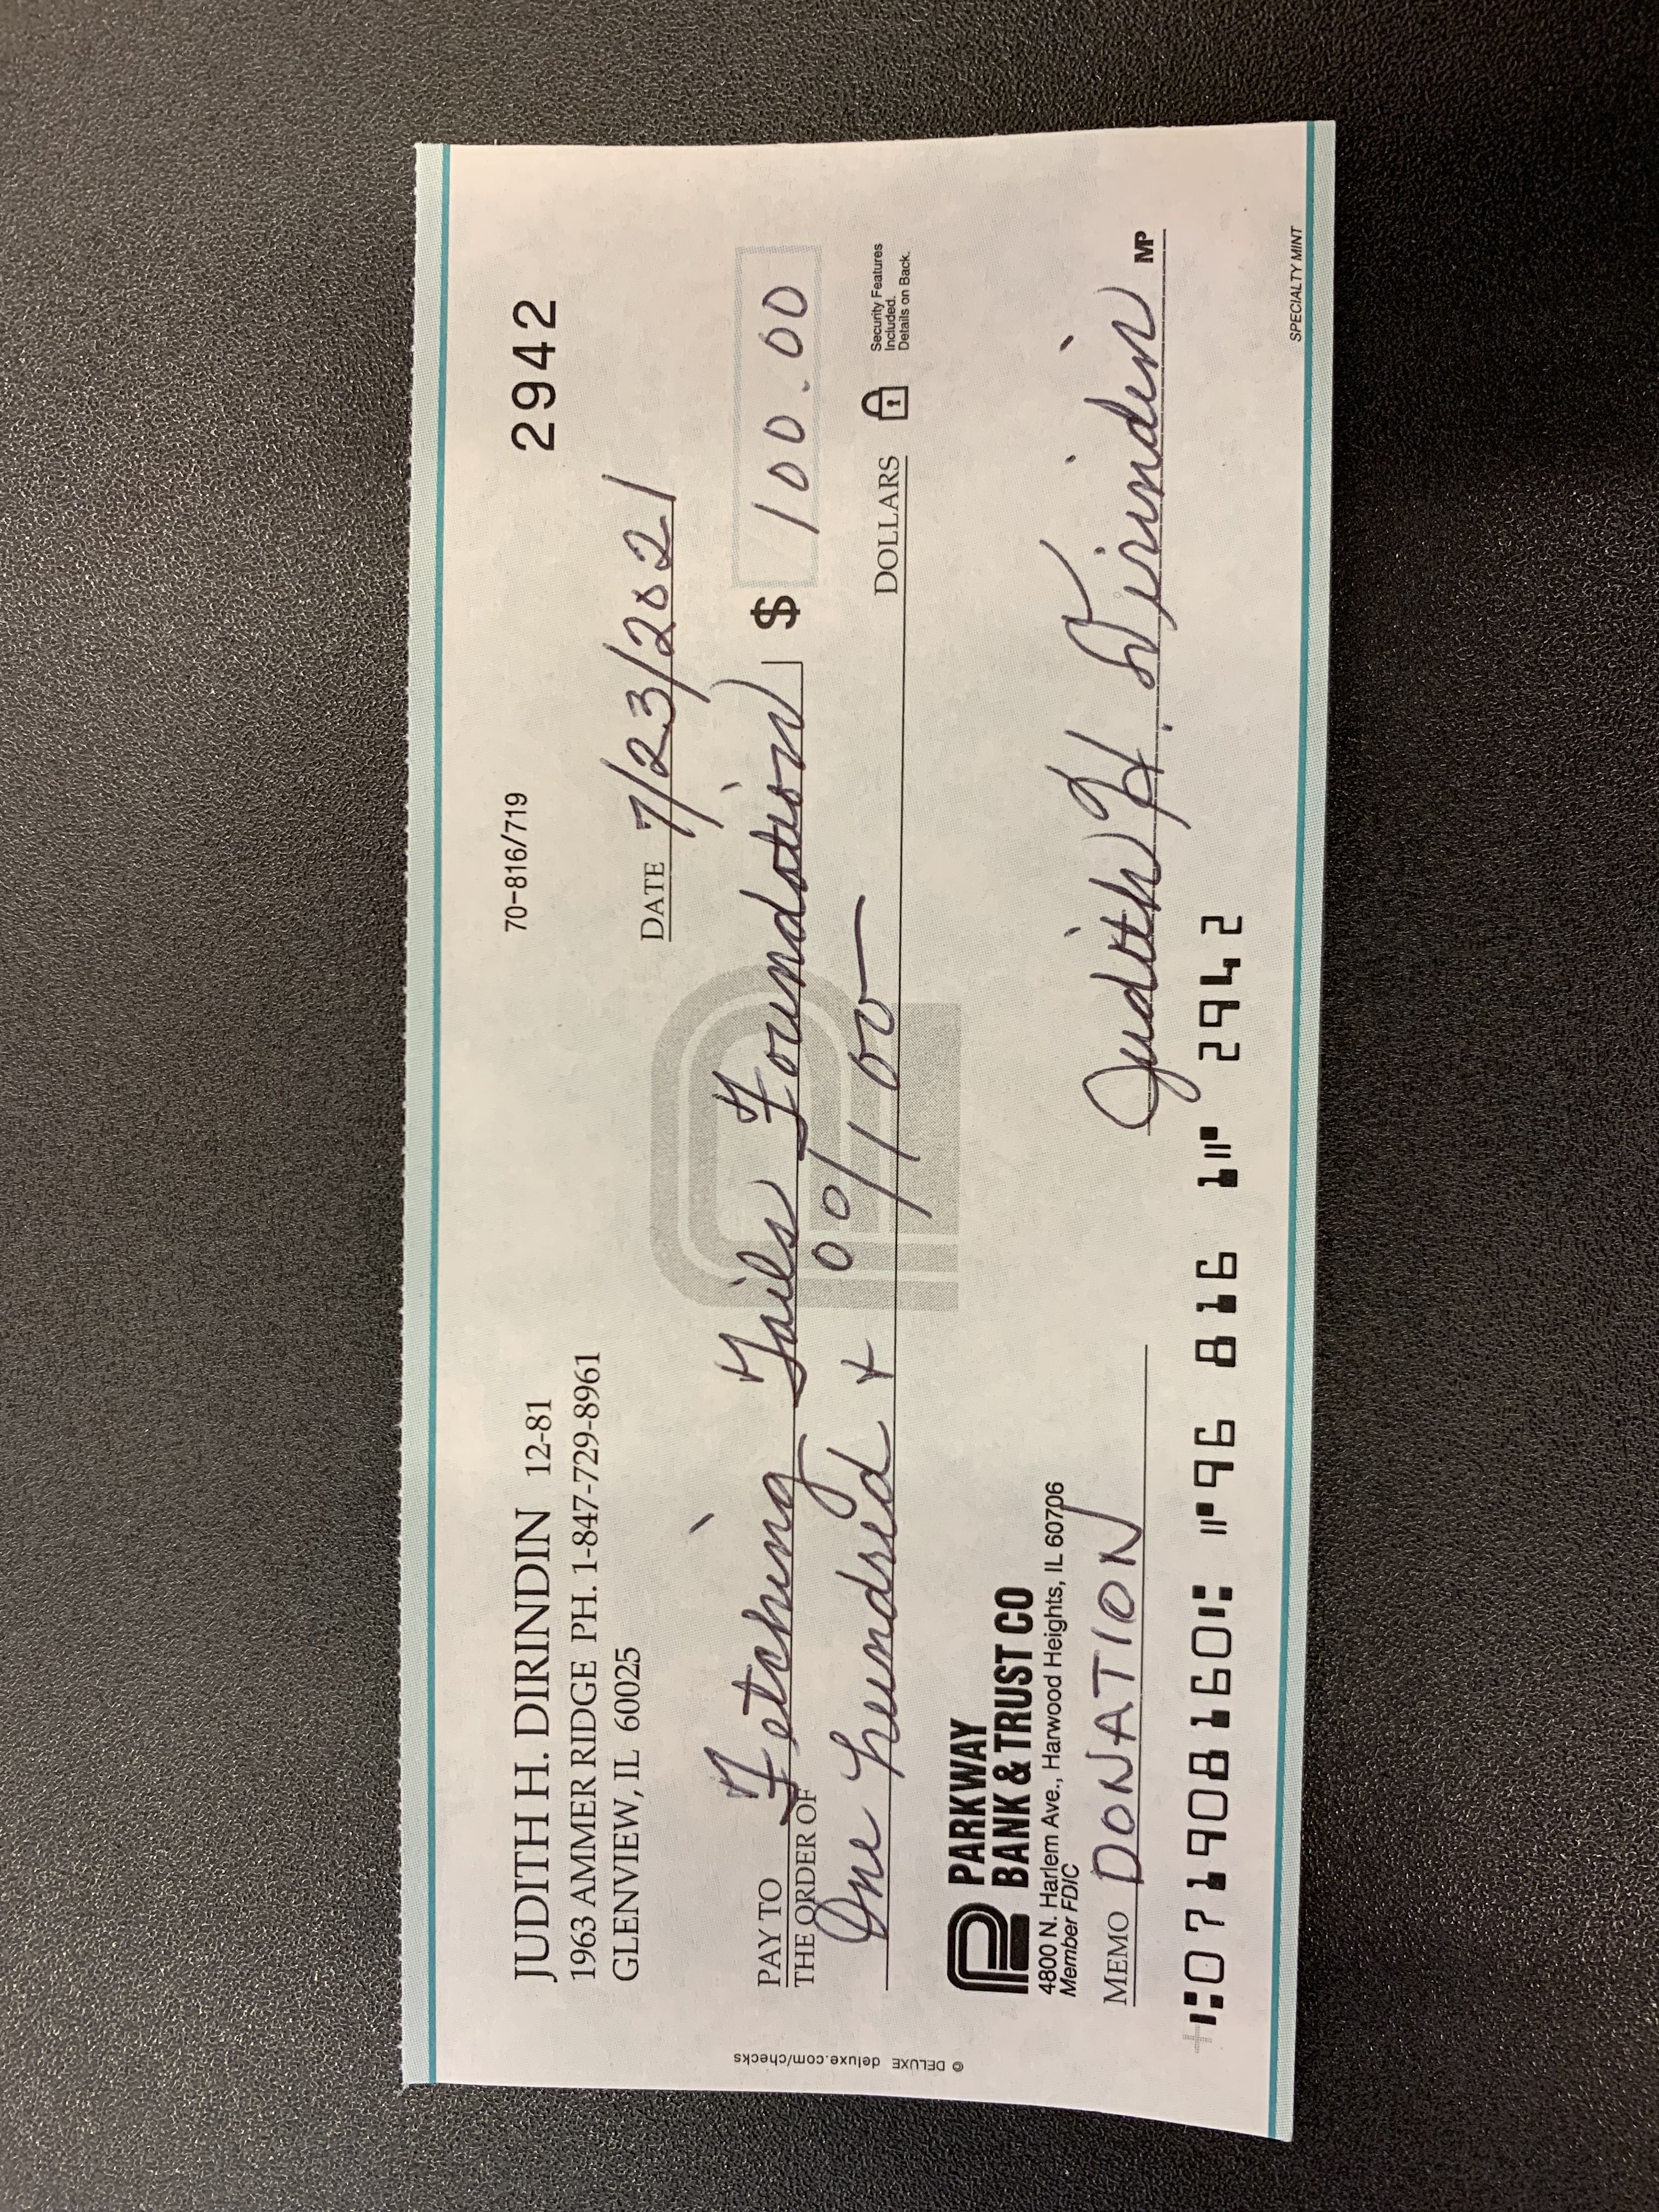 JUDITH H. DIRINDIN 12-81
1963 AMMER RIDGE PH. 1-847-729-8961
GLENVIEW, IL 60025
70-816/719
2942
DATE 7/23/2021
PAY TO
THE ORDER OF Fetching Tails Foundation $ 100.00
One hundred + 00/100 DOLLARS
Security Features
Included.
Details on Back.
PARKWAY
BANK & TRUST CO
4800 N. Harlem Ave., Harwood Heights, IL 60706
Member FDIC
MEMO DONATION
Judith H. Dirindin MP
⑆071908160⑆ ⑈96 816 1⑈ 2942
SPECIALTY MINT
© DELUXE deluxe.com/checks